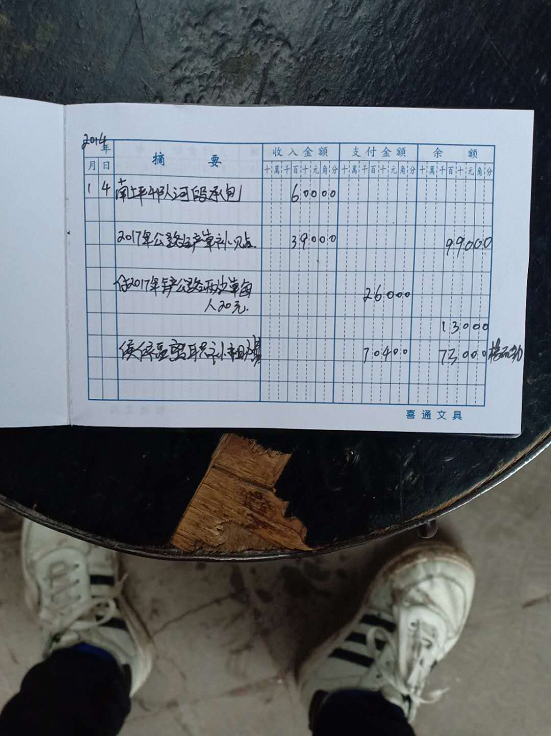 2014年
摘要 收入金额 支付金额 余额
月 日 十萬千百十元角分 十萬千百十元角分 十萬千百十元角分
1 4 南上平 队河段承包 60000
2017年公路 草补贴 39000 99000
付2017年铲公路两边草每
人20元. 26000
13000
补 70400 73000
喜通文具